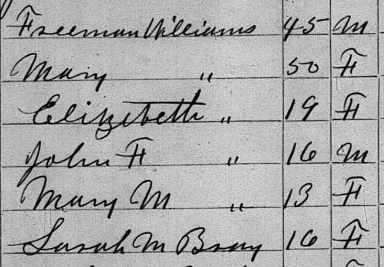 Freeman Williams 45 M
Mary " 50 F
Elizebeth " 19 F
John F " 16 M
Mary M " 13 F
Sarah M Bray 16 F